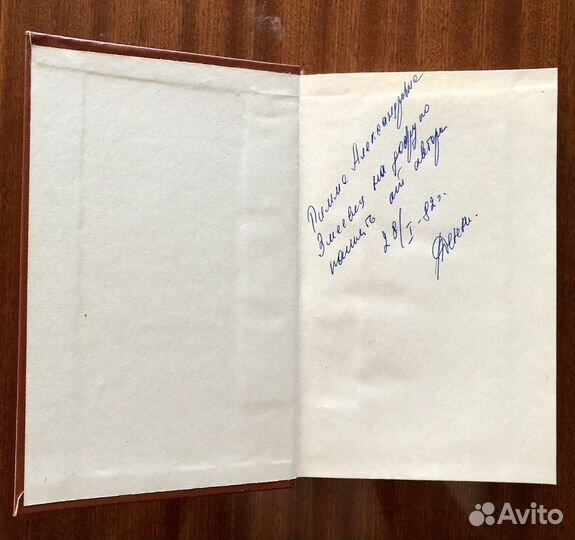 Римме Александровне
Змеевец на добрую
память от автора
28/I-82г.
Avito